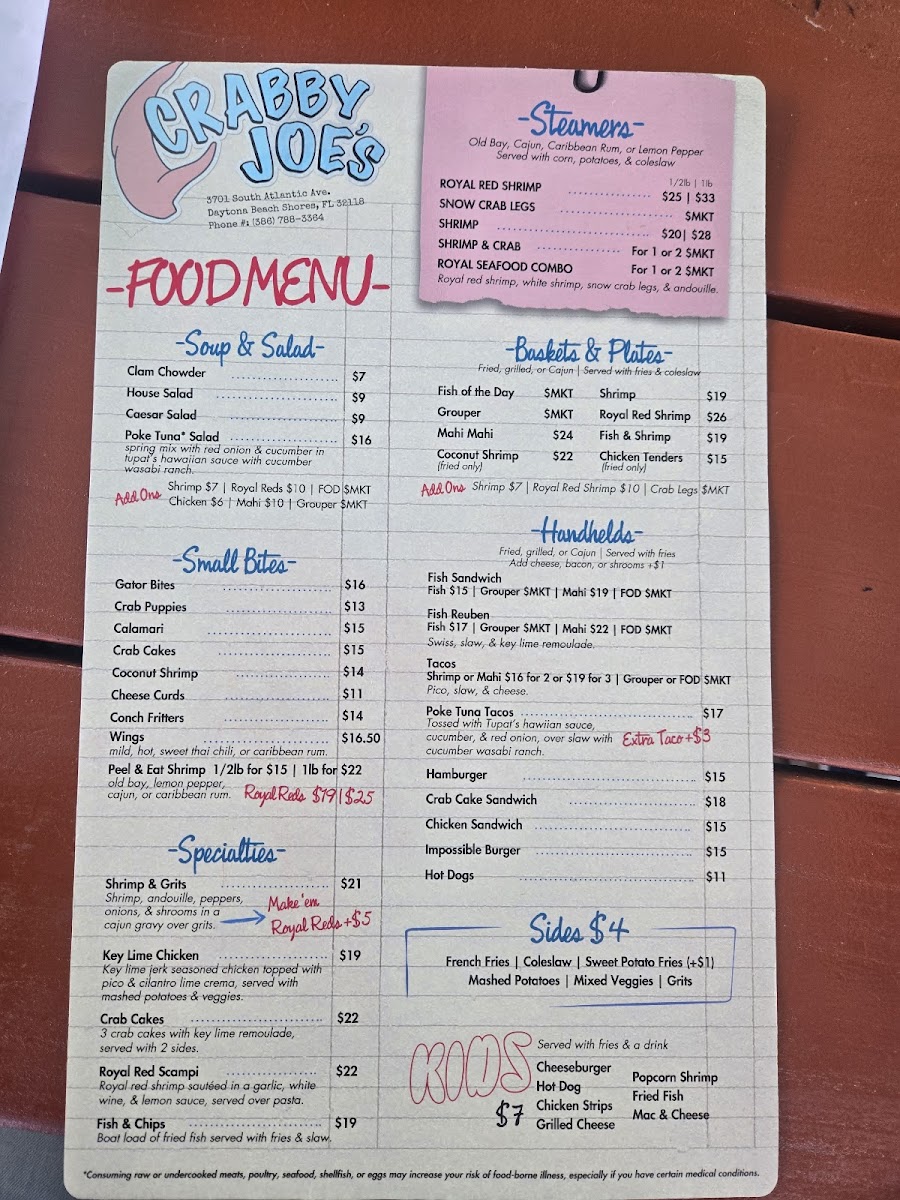 CRABBY
JOE'S
3701 South Atlantic Ave.
Daytona Beach Shores, FL 32118
Phone #: (386) 788-3364
-FOOD MENU-
-Steamers-
Old Bay, Cajun, Caribbean Rum, or Lemon Pepper
Served with corn, potatoes, & coleslaw
1/2lb | 1lb
ROYAL RED SHRIMP $25 | $33
SNOW CRAB LEGS $MKT
SHRIMP $20| $28
SHRIMP & CRAB For 1 or 2 $MKT
ROYAL SEAFOOD COMBO For 1 or 2 $MKT
Royal red shrimp, white shrimp, snow crab legs, & andouille.
-Soup & Salad-
Clam Chowder $7
House Salad $9
Caesar Salad $9
Poke Tuna* Salad $16
spring mix with red onion & cucumber in
tupat's hawaiian sauce with cucumber
wasabi ranch.
Add Ons Shrimp $7 | Royal Reds $10 | FOD $MKT
Chicken $6 | Mahi $10 | Grouper $MKT
-Small Bites-
Gator Bites $16
Crab Puppies $13
Calamari $15
Crab Cakes $15
Coconut Shrimp $14
Cheese Curds $11
Conch Fritters $14
Wings $16.50
mild, hot, sweet thai chili, or caribbean rum.
Peel & Eat Shrimp 1/2lb for $15 | 1lb for $22
old bay, lemon pepper,
cajun, or caribbean rum. Royal Reds $19|$25
-Specialties-
Shrimp & Grits $21
Shrimp, andouille, peppers,
onions, & shrooms in a
cajun gravy over grits.
Make'em
Royal Reds +$5
Key Lime Chicken $19
Key lime jerk seasoned chicken topped with
pico & cilantro lime crema, served with
mashed potatoes & veggies.
Crab Cakes $22
3 crab cakes with key lime remoulade,
served with 2 sides.
Royal Red Scampi $22
Royal red shrimp sautéed in a garlic, white
wine, & lemon sauce, served over pasta.
Fish & Chips $19
Boat load of fried fish served with fries & slaw.
-Baskets & Plates-
Fried, grilled, or Cajun | Served with fries & coleslaw
Fish of the Day $MKT Shrimp $19
Grouper $MKT Royal Red Shrimp $26
Mahi Mahi $24 Fish & Shrimp $19
Coconut Shrimp $22 Chicken Tenders $15
(fried only) (fried only)
Add Ons Shrimp $7 | Royal Red Shrimp $10 | Crab Legs $MKT
-Handhelds-
Fried, grilled, or Cajun | Served with fries
Add cheese, bacon, or shrooms +$1
Fish Sandwich
Fish $15 | Grouper $MKT | Mahi $19 | FOD $MKT
Fish Reuben
Fish $17 | Grouper $MKT | Mahi $22 | FOD $MKT
Swiss, slaw, & key lime remoulade.
Tacos
Shrimp or Mahi $16 for 2 or $19 for 3 | Grouper or FOD $MKT
Pico, slaw, & cheese.
Poke Tuna Tacos $17
Tossed with Tupat's hawiian sauce,
cucumber, & red onion, over slaw with Extra Taco +$3
cucumber wasabi ranch.
Hamburger $15
Crab Cake Sandwich $18
Chicken Sandwich $15
Impossible Burger $15
Hot Dogs $11
Sides $4
French Fries | Coleslaw | Sweet Potato Fries (+$1)
Mashed Potatoes | Mixed Veggies | Grits
KIDS
$7
Served with fries & a drink
Cheeseburger
Hot Dog
Chicken Strips
Grilled Cheese
Popcorn Shrimp
Fried Fish
Mac & Cheese
*Consuming raw or undercooked meats, poultry, seafood, shellfish, or eggs may increase your risk of food-borne illness, especially if you have certain medical conditions.